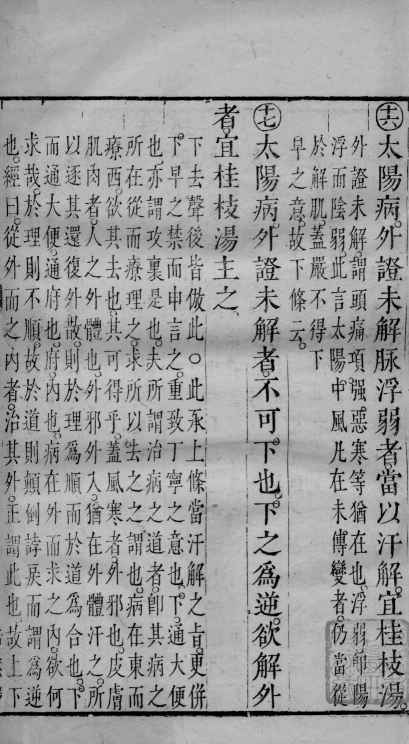 十六太陽病外證未解脉浮弱者當以汗解宜桂枝湯
外證未解謂頭痛項强惡寒等猶在也浮弱即陽
浮而陰弱此言太陽中風凡在未傳變者仍當從
於解肌蓋嚴不得下
早之意故下條云
十七太陽病外證未解者不可下也下之爲逆欲解外
者宜桂枝湯主之
下去聲後皆倣此○此承上條當汗解之旨更併
下早之禁而申言之重致丁寧之意也下通大便
也亦謂攻裏是也夫所謂治病之道者即其病之
所在從而療理之求所以去之之謂也病在東而
療西欲其去也其可得乎蓋風寒者外邪也皮膚
肌肉者人之外體也外邪外入猶在外體汗之所
以逐其還復外散則於理爲順而於道爲合也下
而通大便通府也府內也病在外而求之內欲何
求哉於理則不順故於道則顛倒誖戾而謂爲逆
也經曰從外而之內者治其外正謂此也故上下